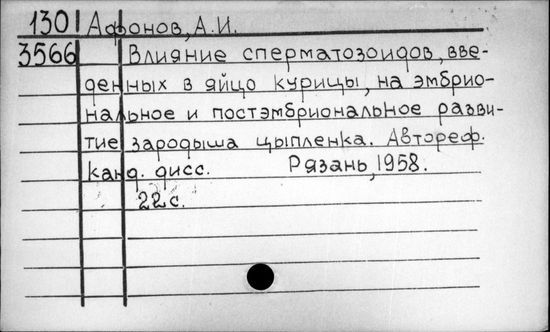 130 Афонов, А.И.
3566 Влияние сперматозоидов, вве-
денных в яйцо курицы, на эмбрио-
нальное и постэмбриональное разви-
тие зародыша цыпленка. Автореф.
канд. дисс. Рязань, 1958.
22 с.